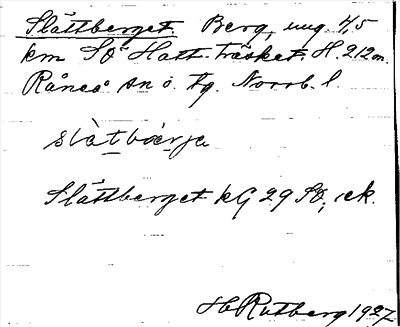 Slåttberget. Berg, ung. 4,5
km SÖ Hatt-träsket. H. 212 m.
Råneå sn o. tg. Norrb. l.
slåtbærje
Slåttberget kG 29 SÖ, ek.
H Rutberg 1927